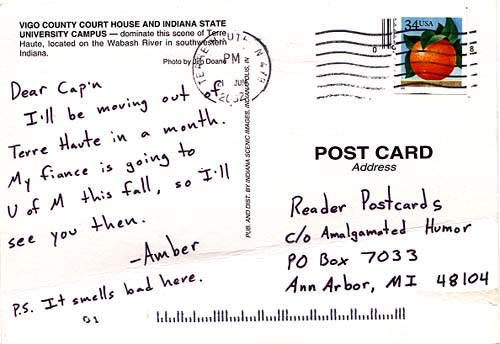 VIGO COUNTY COURT HOUSE AND INDIANA STATE
UNIVERSITY CAMPUS — dominate this scene of Terre
Haute, located on the Wabash River in southwestern
Indiana.
Photo by Jim Doane
TERRE HAUTE IN 478
PM
21 JUN
2002
34 USA
Dear Cap'n
I'll be moving out of
Terre Haute in a month.
My fiance is going to
U of M this fall, so I'll
see you then.
-Amber
P.S. It smells bad here.
PUB. AND DIST. BY INDIANA SCENIC IMAGES, INDIANAPOLIS, IN
POST CARD
Address
Reader Postcards
c/o Amalgamated Humor
PO Box 7033
Ann Arbor, MI 48104